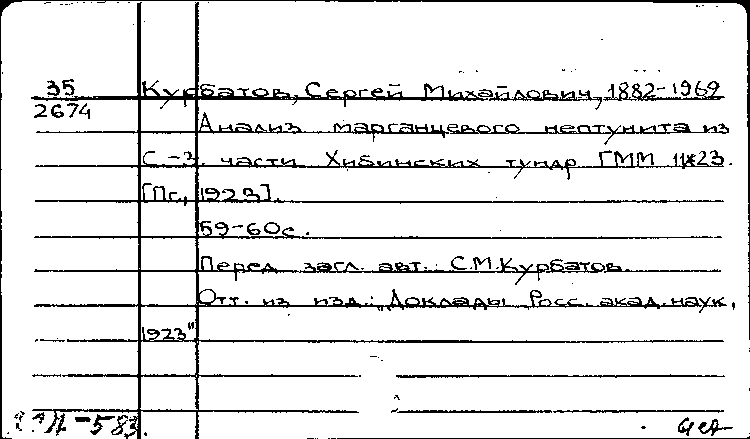 35
2674
Курбатов, Сергей Михайлович, 1882-1969
Анализ марганцевого нептунита из
С.-З. части Хибинских тундр ГММ
[Пг., 1923].
59-60с.
Перед загл. авт.: С.М.Курбатов.
Отт. из изд.: "Доклады Росс. акад. наук,
1923"